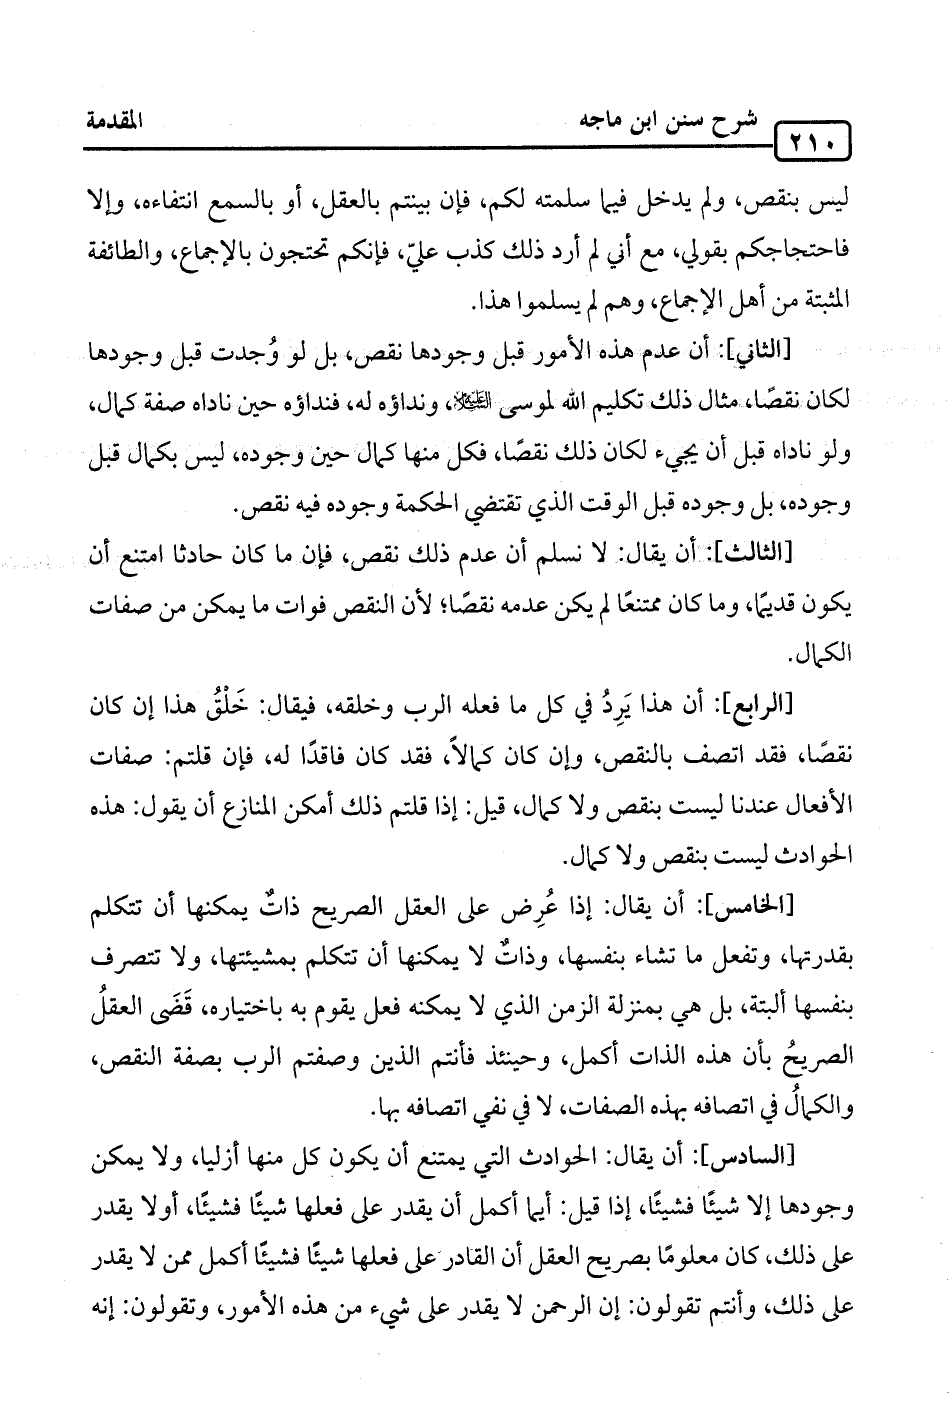 ٢١٠
شرح سنن ابن ماجه
المقدمة
ليس بنقص، ولم يدخل فيما سلمته لكم، فإن بينتم بالعقل، أو بالسمع انتفاءه، وإلا
فاحتجاجكم بقولي، مع أني لم أرد ذلك كذب عليّ، فإنكم تحتجون بالإجماع، والطائفة
المثبتة من أهل الإجماع، وهم لم يسلموا هذا.
[الثاني]: أن عدم هذه الأمور قبل وجودها نقص، بل لو وُجدت قبل وجودها
لكان نقصًا، مثال ذلك تكليم الله لموسى عليه السلام، ونداؤه له، فنداؤه حين ناداه صفة كمال،
ولو ناداه قبل أن يجيء لكان ذلك نقصًا، فكل منها كمال حين وجوده، ليس بكمال قبل
وجوده، بل وجوده قبل الوقت الذي تقتضي الحكمة وجوده فيه نقص.
[الثالث]: أن يقال: لا نسلم أن عدم ذلك نقص، فإن ما كان حادثا امتنع أن
يكون قديمًا، وما كان ممتنعًا لم يكن عدمه نقصًا؛ لأن النقص فوات ما يمكن من صفات
الكمال.
[الرابع]: أن هذا يَرِدُ في كل ما فعله الرب وخلقه، فيقال: خَلْقُ هذا إن كان
نقصًا، فقد اتصف بالنقص، وإن كان كمالاً، فقد كان فاقدًا له، فإن قلتم: صفات
الأفعال عندنا ليست بنقص ولا كمال، قيل: إذا قلتم ذلك أمكن المنازع أن يقول: هذه
الحوادث ليست بنقص ولا كمال.
[الخامس]: أن يقال: إذا عُرِض على العقل الصريح ذاتٌ يمكنها أن تتكلم
بقدرتها، وتفعل ما تشاء بنفسها، وذاتٌ لا يمكنها أن تتكلم بمشيئتها، ولا تتصرف
بنفسها ألبتة، بل هي بمنزلة الزمن الذي لا يمكنه فعل يقوم به باختياره، قَضَى العقلُ
الصريحُ بأن هذه الذات أكمل، وحينئذ فأنتم الذين وصفتم الرب بصفة النقص،
والكمالُ في اتصافه بهذه الصفات، لا في نفي اتصافه بها.
[السادس]: أن يقال: الحوادث التي يمتنع أن يكون كل منها أزليا، ولا يمكن
وجودها إلا شيئًا فشيئًا، إذا قيل: أيما أكمل أن يقدر على فعلها شيئًا فشيئًا، أولا يقدر
على ذلك، كان معلومًا بصريح العقل أن القادر على فعلها شيئًا فشيئًا أكمل ممن لا يقدر
على ذلك، وأنتم تقولون: إن الرحمن لا يقدر على شيء من هذه الأمور، وتقولون: إنه